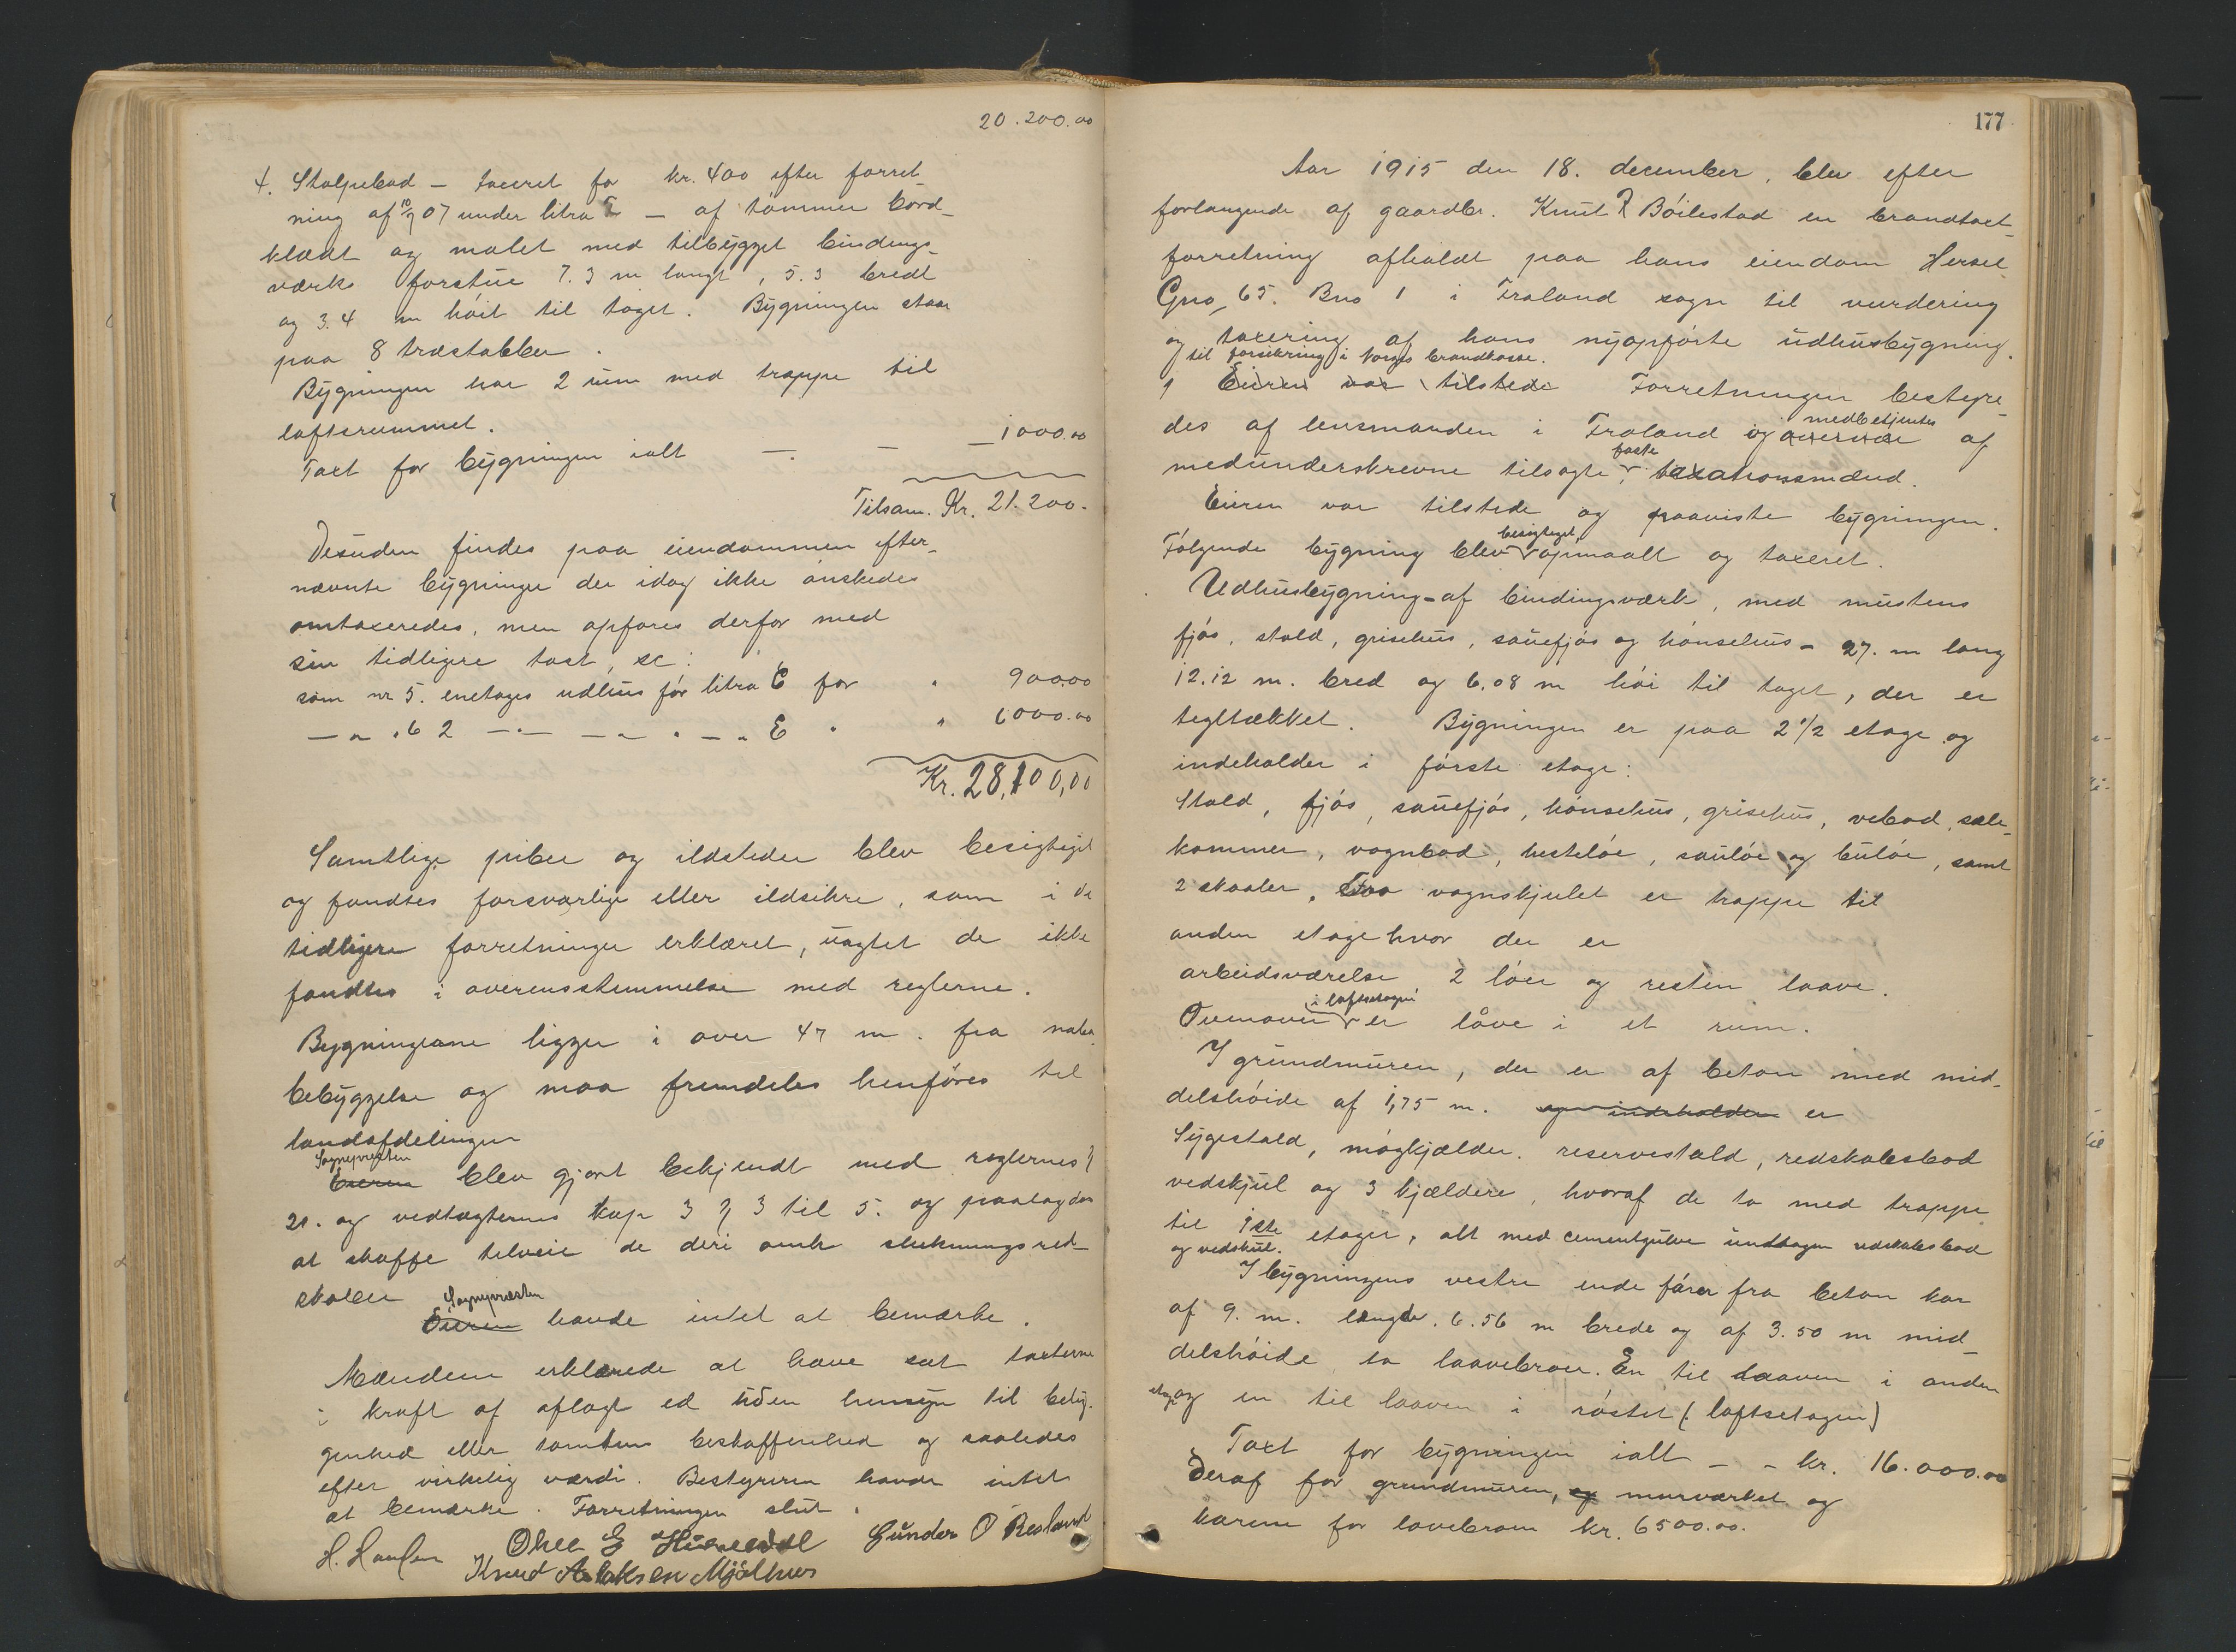 20.200.00
4. Stolpebod – taxeret for kr. 400 efter forret
ning af 10/9 07 under litra – af tömmer bord-
klædt og malet med tilbygget bindings-
værks forstue 7.3 m langt, 5.3 bredt
og 3.4 m höit til taget. Bygningen staar
paa 8 træstabber.
Bygningen har 2 rum med trappe til
loftsrummet.
Taxt for bygningen ialt – – – 1000.00
Tilsam. Kr. 21.200.-
Desuden findes paa eiendommen efter-
nævnte bygninger der idag ikke önskedes
omtaxeredes, men opföres derfor med
sin tidligere taxt, sc:
som nr 5. enetages udhus för litra C for " 900.00
— " — 6 2 — " — — " — " — " E " " 6000.00
Kr. 28,100,00
Samtlige piber og ildsteder blev besigtiget
og fandtes forsvarlige eller ildsikre, som i de
tidligere forretninger erklæret, uagtet de ikke
fandtes i overensstemmelse med reglerne.
Bygningerne ligger i over 47 m. fra nabo
bebyggelse og maa fremdeles henföres til
landafdelingen
Sognepresten
Eieren blev gjort bekjendt med reglernes §
21. og vedtægternes kap 3 § 3 til 5. og paalagdes
at skaffe tilveie de deri omh slukningsred-
skaber
Sognepræsten
Eieren havde intet at bemærke.
Mændene erklærede at have sat taxterne
i kraft af aflagt ed uden hensyn til belig-
genhed eller tomtens beskaffenhed og saaledes
efter virkelig værdi. Bestyreren havde intet
at bemærke. Forretningen slut.
H. Hansen Gunder O Resland
Knud Aslaksen Mjölhus
177
Aar 1915 den 18. december, blev efter
forlangende af gaardbr. Knut Böilestad en brandtaxt-
forretning afholdt paa hans eiendom Hersel
Gno 65. Bno 1 i Froland sogn til vurdering
og taxering af hans nyopförte udhusbygning.
til forsikring i Norges brandkasse.
Eieren var tilstede Forretningen bestyre-
medbetjentes
des af lensmanden i Froland og overvær af
faste
medunderskrevne tilsagte taxationsmænd.
Eieren var tilstede og paaviste bygningen.
besigtiget
Fölgende bygning blev opmaalt og taxeret.
Udhusbygning – af bindingsværk, med mustens
fjös, stald, grisehus, sauefjös og hönsehus – 27. m lang
12.12 m. bred og 6.08 m höi til taget, der er
tegltækket. Bygningen er paa 2 1/2 etage og
indeholder i förste etage:
Stald, fjös, sauefjös, hönsehus, grisehus, vebod, sæle-
kammer, vognbod, hestelöe, saulöe og bulöe, samt
2 skaaler. Fra vognskjulet er trappe til
anden etage hvor der er
arbeidsværelse 2 löer og resten laave.
i loftsetagen
Ovenover er låve i et rum.
I grundmuren, der er af beton med mid-
delshöide af 1,75 m. og indeholder er
Sygestald, mögkjælder. reservestald, redskabsbod
vedskjul og 3 kjældere, hvoraf de to med trappe
til 1ste etage, alt med cementgulve undtagen redskabsbod
og vedskul.
I bygningens vestre ende förer fra beton kar
af 9. m. længde. 6.56 m brede og af 3.50 m mid-
delshöide to laavebroer. En til laaven i anden
etage og en til laaven i röstet (loftsetagen)
Taxt for bygningen ialt – – kr. 16.000.00
Deraf for grundmuren, og murværket og
karene for lavebroen kr. 6500.00.